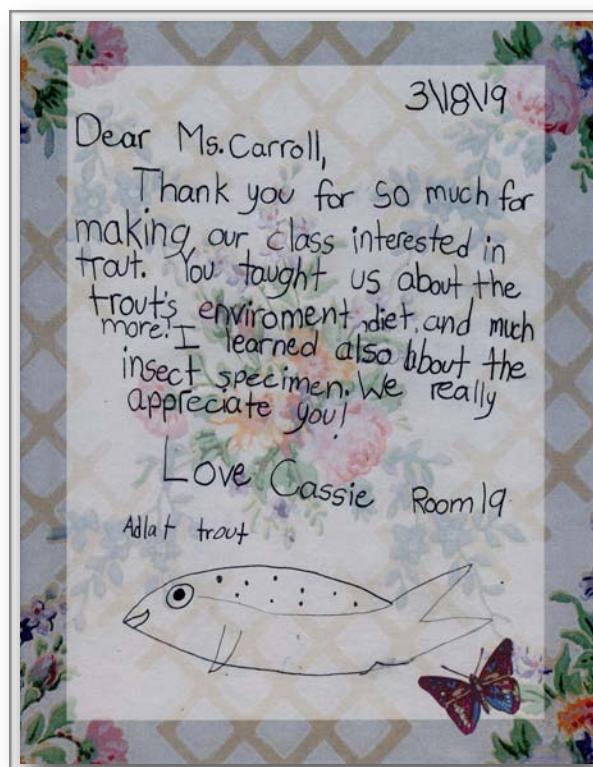 3\18\19
Dear Ms. Carroll,
Thank you for so much for
making our class interested in
trout. You taught us about the
trout's enviroment, diet, and much
more! I learned also about the
insect specimen. We really
appreciate you!
Love Cassie Room 19
Adlat trout